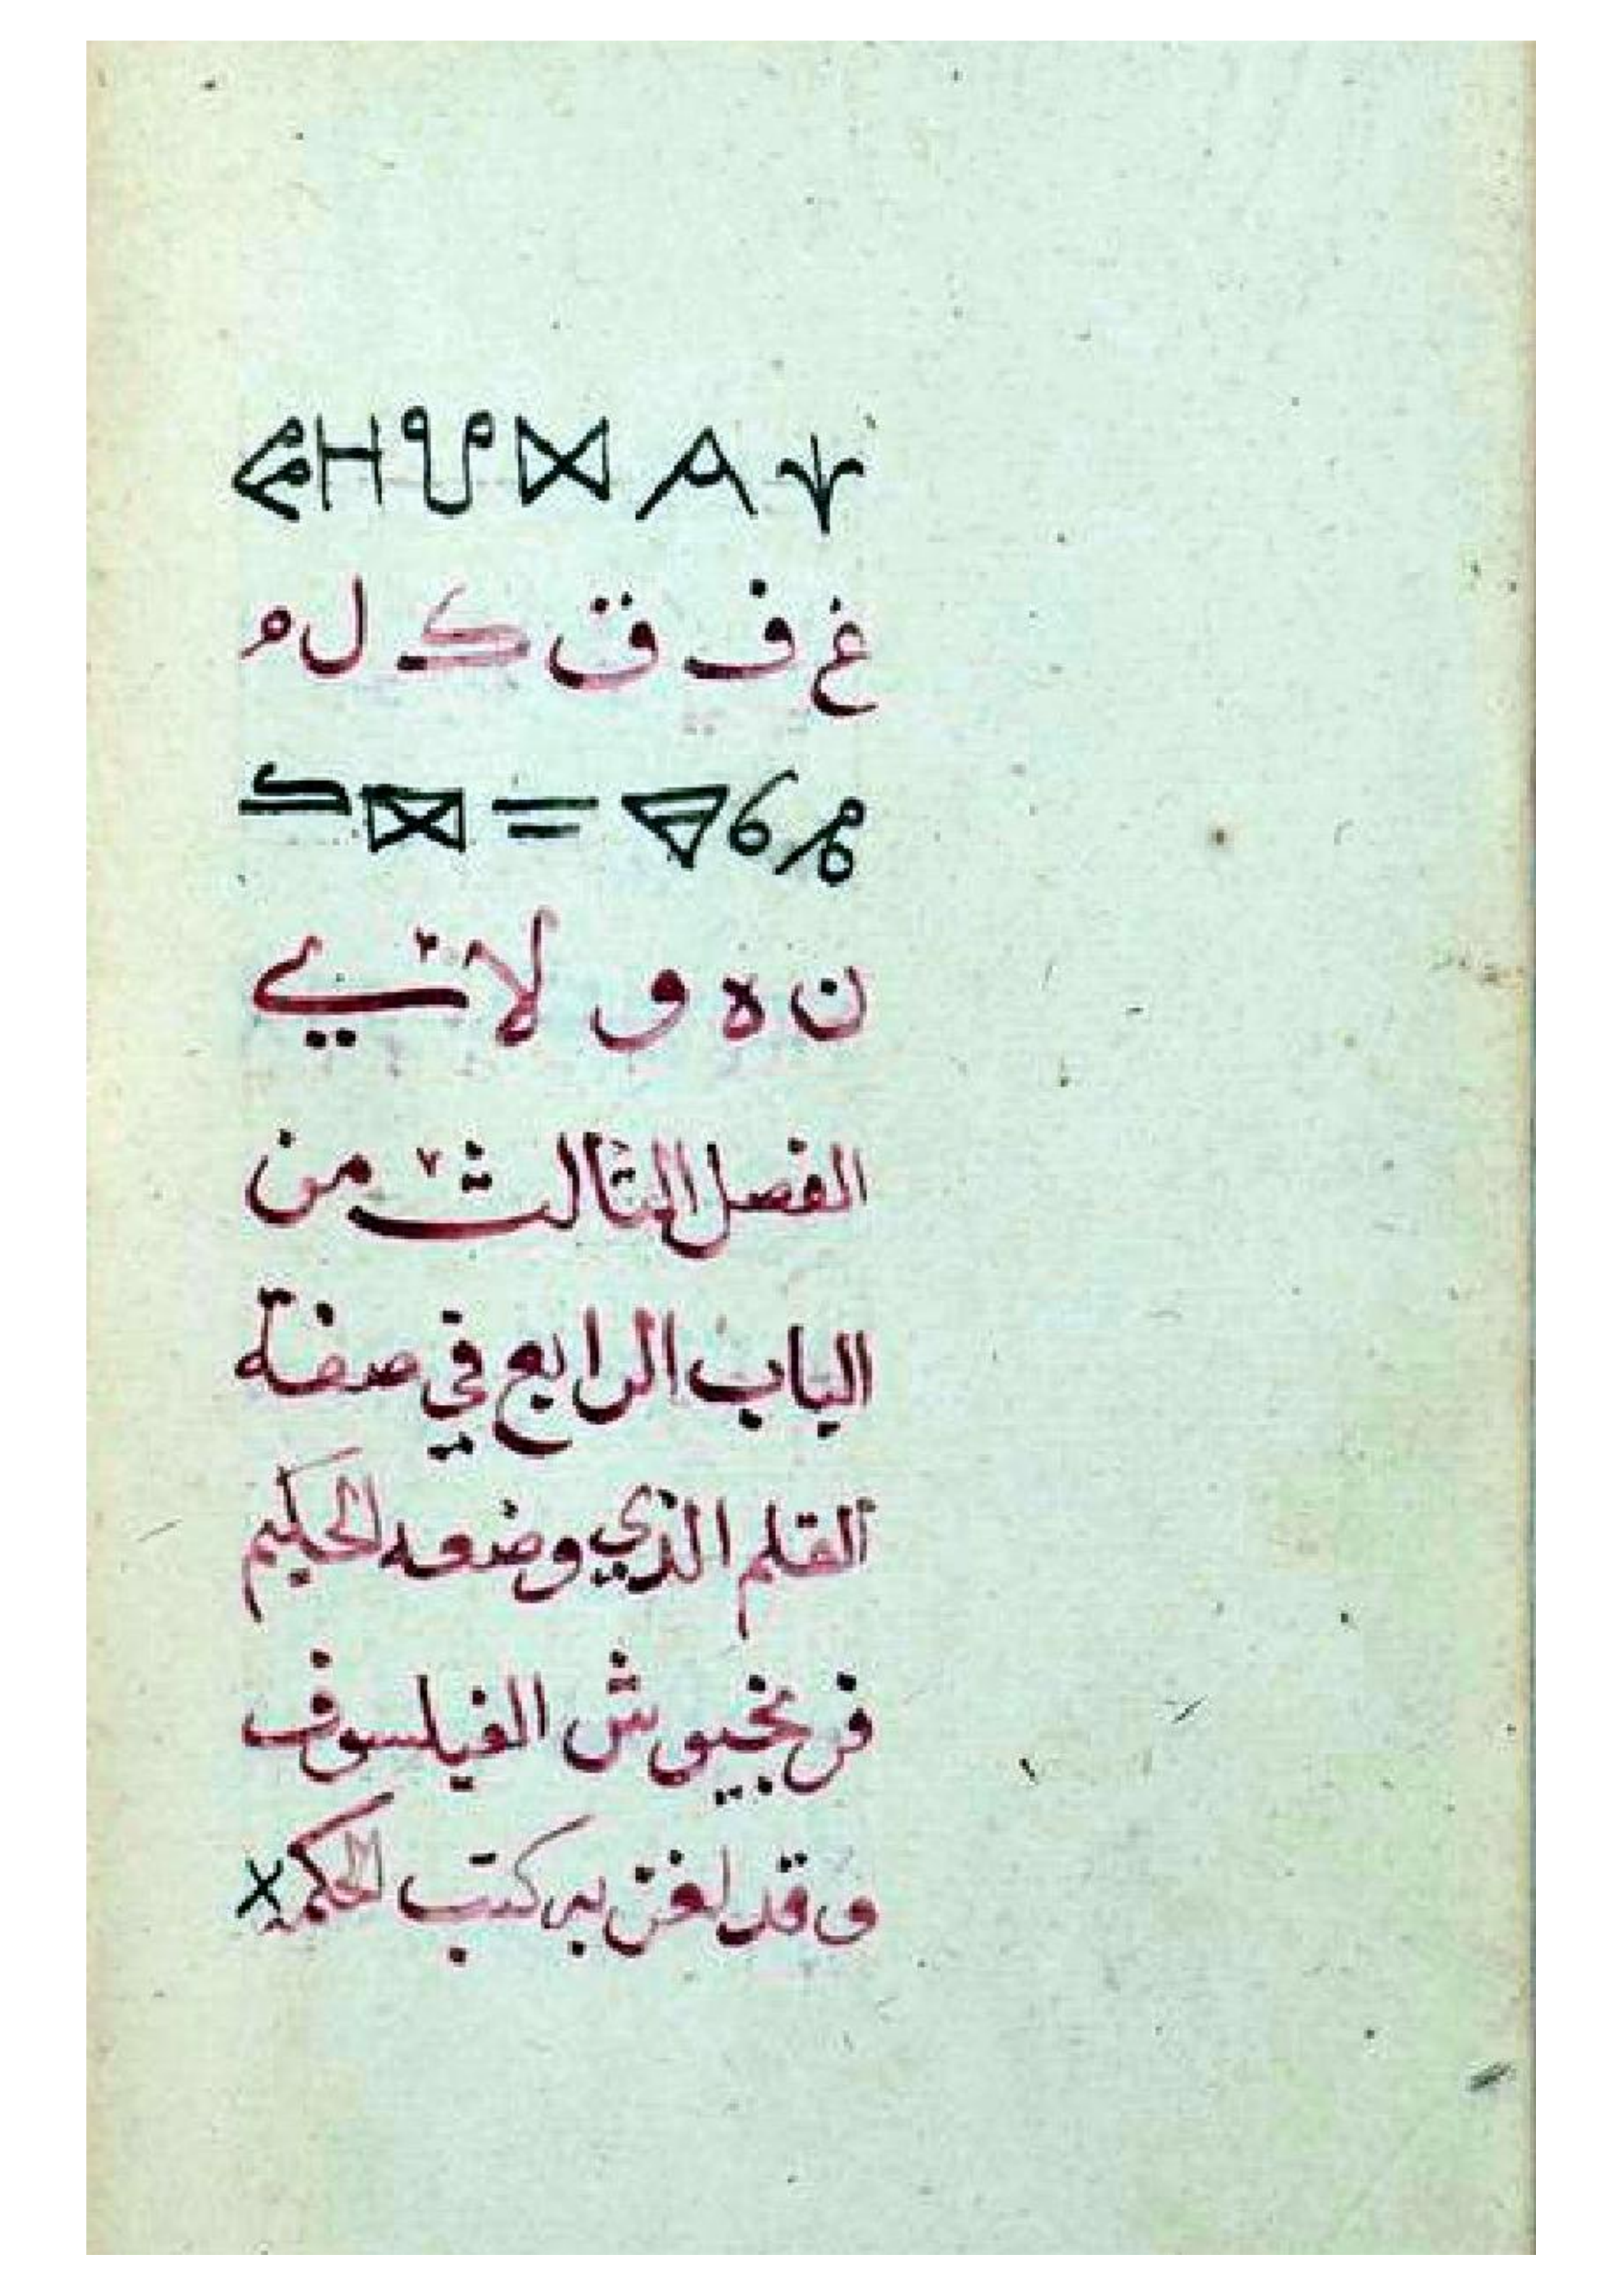 غ ف ق ك ل م
ن ه و لا ي
الفصل الثالث من
الباب الرابع في صفة
القلم الذي وضعه الحكيم
فرنجيوش الفيلسوف
وقد لغز به كتب الحكمة